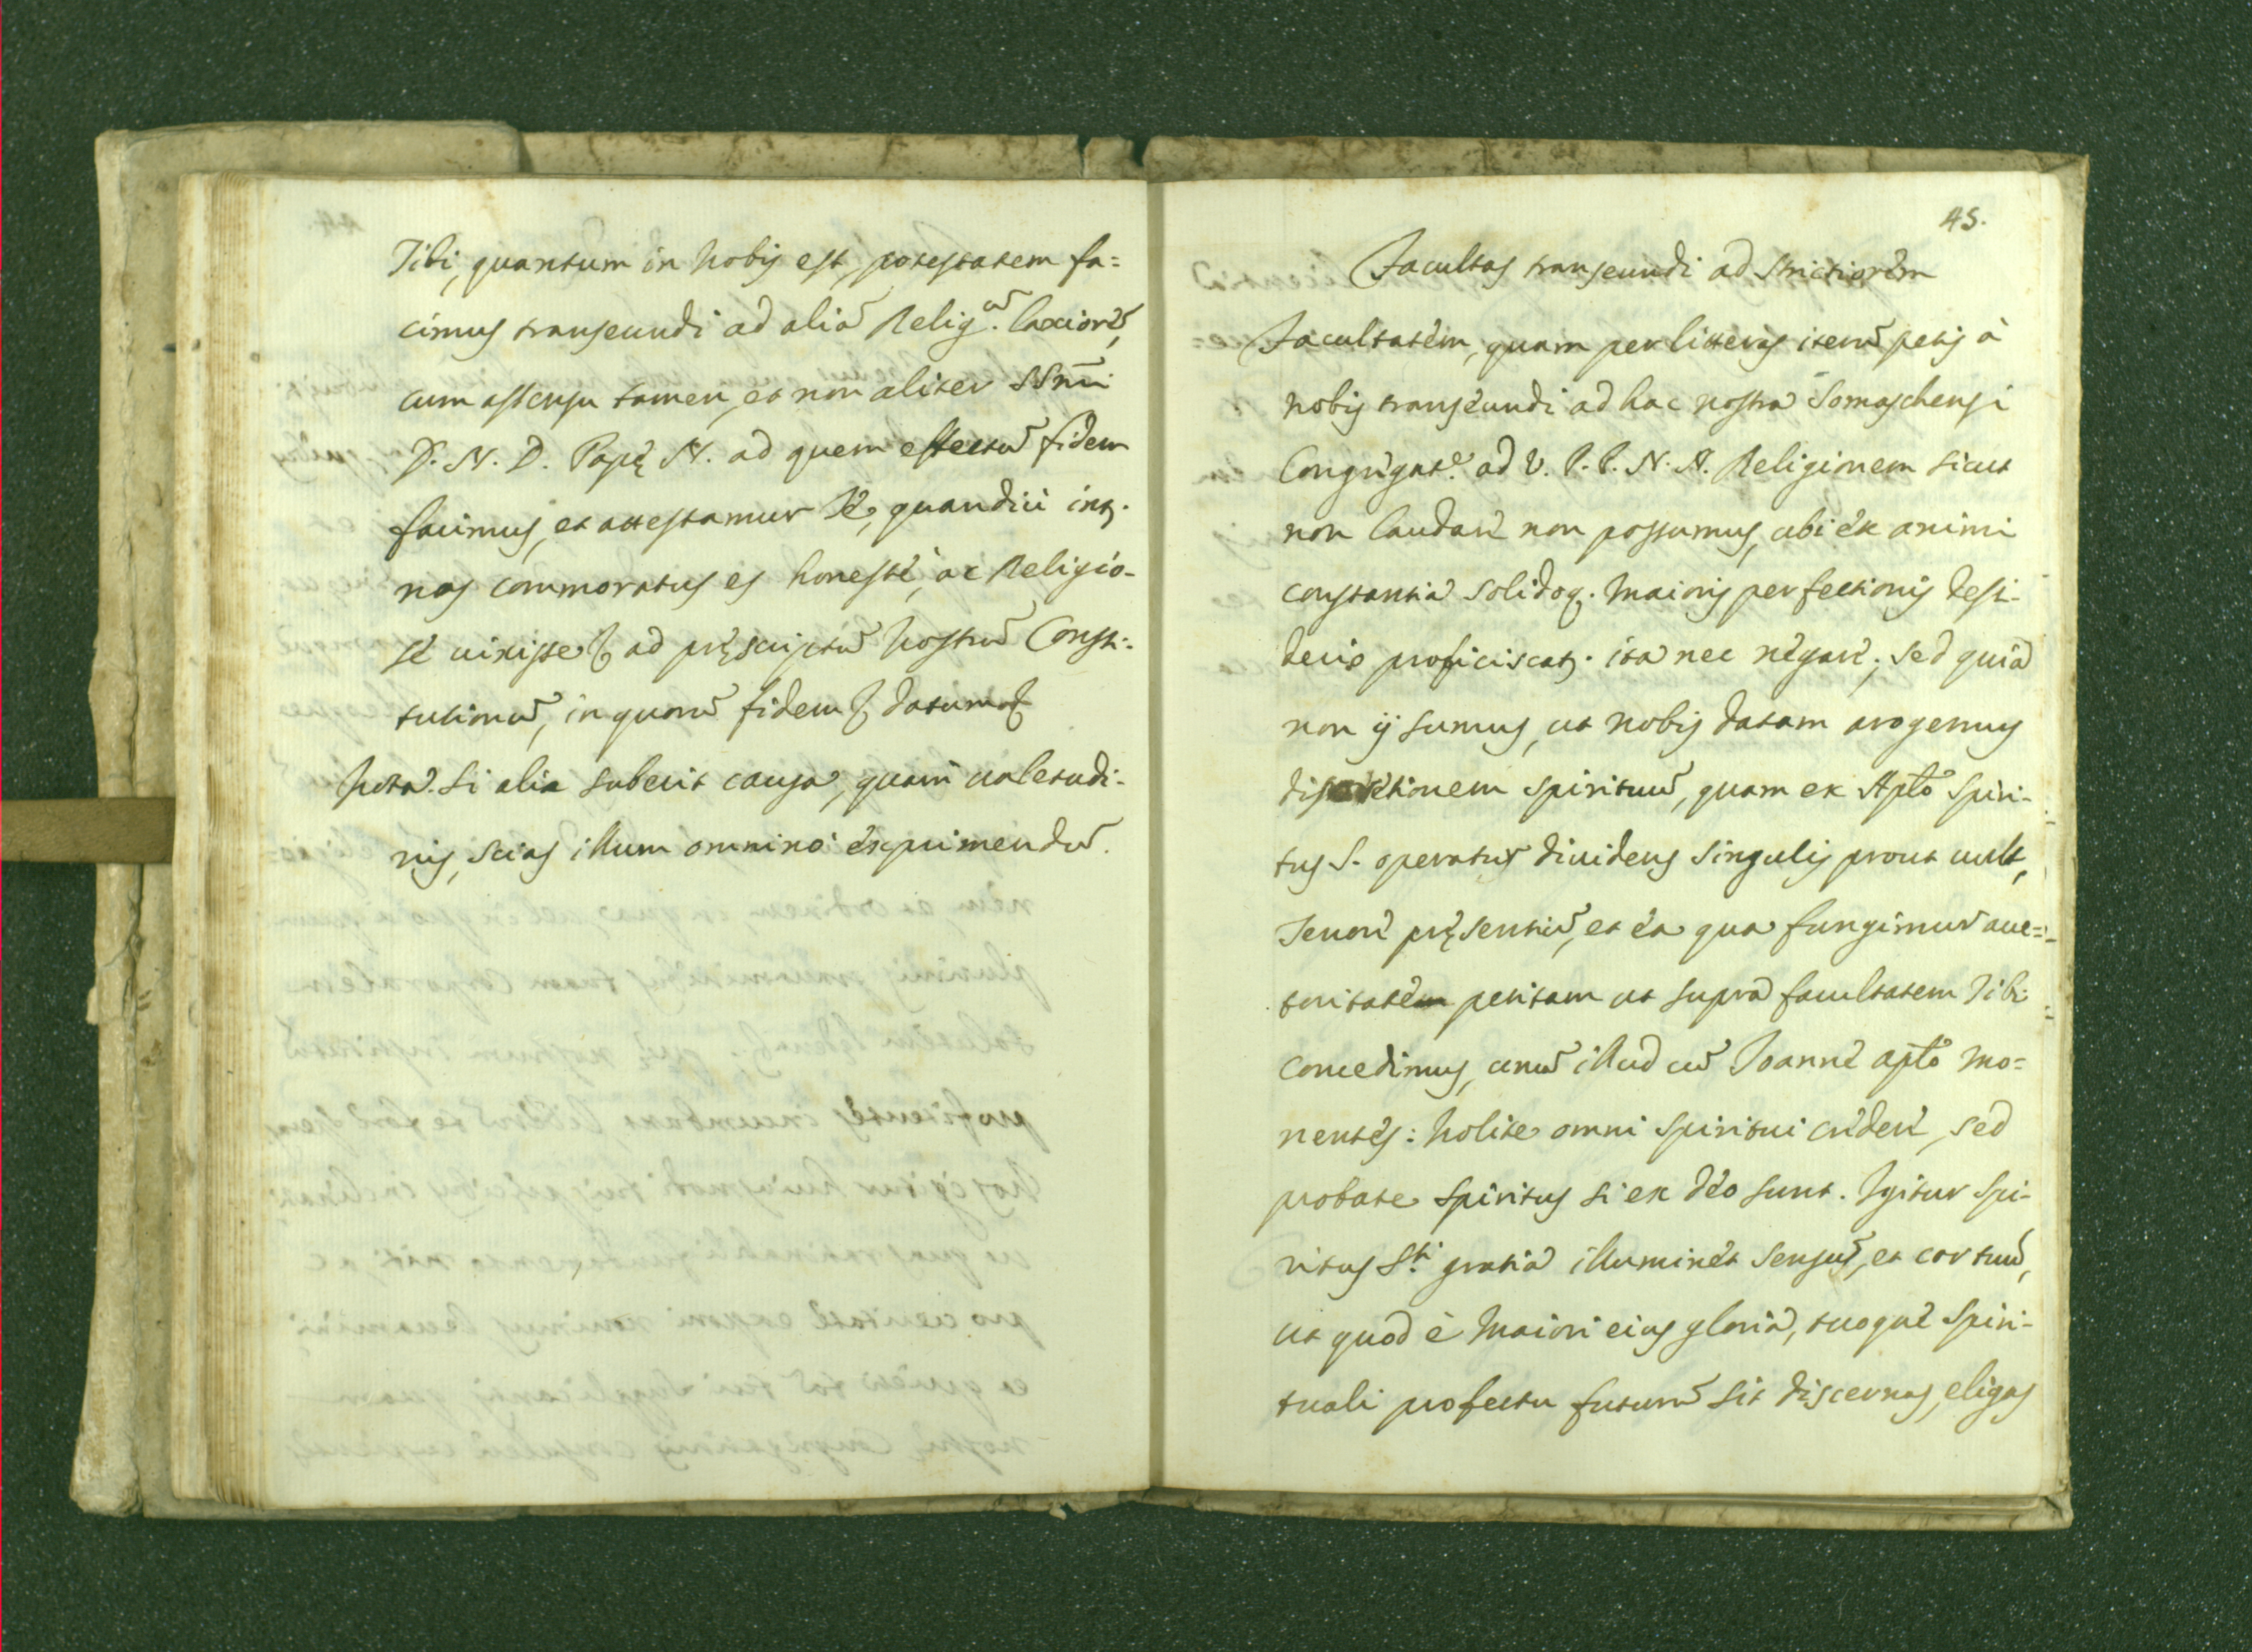 Tibi, quantum in Nobis est, potestatem fa=
cimus transeundi ad aliā Religem. laxiorē,
cum assensu tamen, et non aliter SSmi
D. N. D. Papę N. ad quem effectū fidem
facimus, et attestamur Te, quandiù int.
nos commoratus es honestè, ac Religio-
sè uixisse &c ad pręscriptū Nostrarū Consti-
tutionū, in quorū fidem &c datum &c
Nota. Si alia suberit causa, quam ualetudi-
nis, scias illum omninò exprimendū.
45.
Facultas transeundi ad strictiorem
Facultatem, quam per litteras iterū petis à
nobis transeundi ad hac nostra Somaschensi
Congregate. ad V. P. P. N. N. Religionem sicut
non laudare non possumus, ubi ex animi
constantia solidoq. maioris perfectionis desi-
derio proficiscat. ita nec negare; sed quia
non ij sumus, ut nobis datam arogemus
discretionem spirituū, quam ex Aplō Spiri-
tus S. operatur diuidens singulis prout uult,
Tenore pręsentiū, et ea qua fungimur auc=
toritate petitam ut supra facultatem Tibi
concedimus, unū illud cū Joanne aplō mo=
nentes: Nolite omni spiritui credere, sed
probate spiritus si ex Deo sunt. Igitur Spi-
ritus Sti. gratia illuminet sensus, et cor tuū,
ut quod è maiori eius gloria, tuoque spiri-
tuali profectu futurū sit discernas, eligas